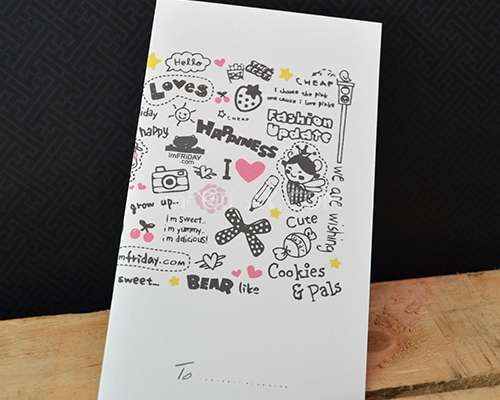 Hello
Loves
CHEAP
I choose the pink
friday
CHEAP
happy
HAPPINESS
Fashion
Update
ImFRiDAY
.com
I
we are wishing
grow up...
i'm sweet..
i'm yummy..
i'm delicious!
Cute
imfriday.com
Cookies
& Pals
sweet...
BEAR like
To